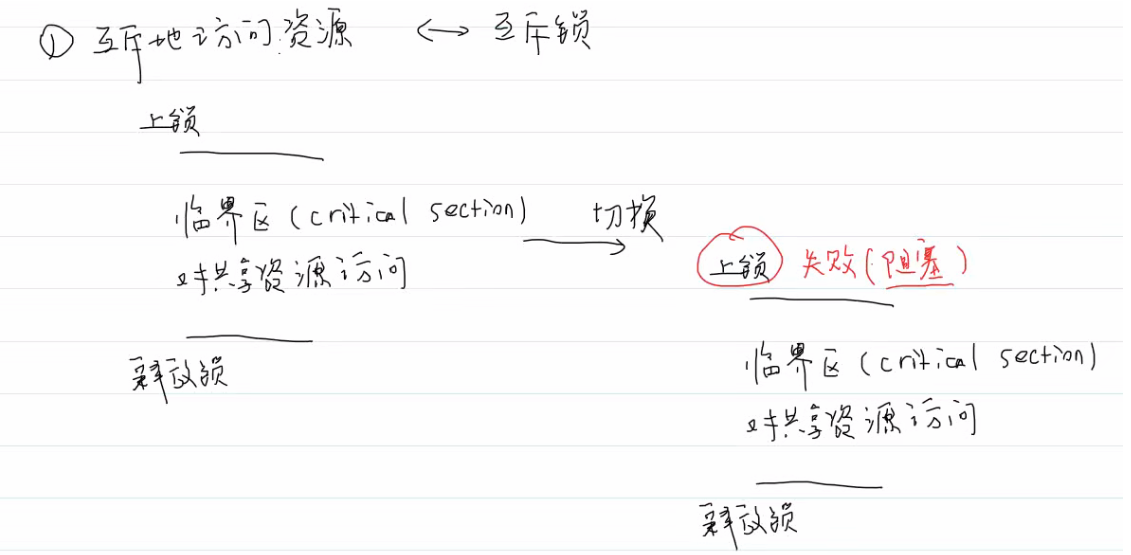 ① 互斥地访问资源 ⟷ 互斥锁
上锁
临界区(critical section)
对共享资源访问
释放锁
切换
上锁 失败(阻塞)
临界区(critical section)
对共享资源访问
释放锁